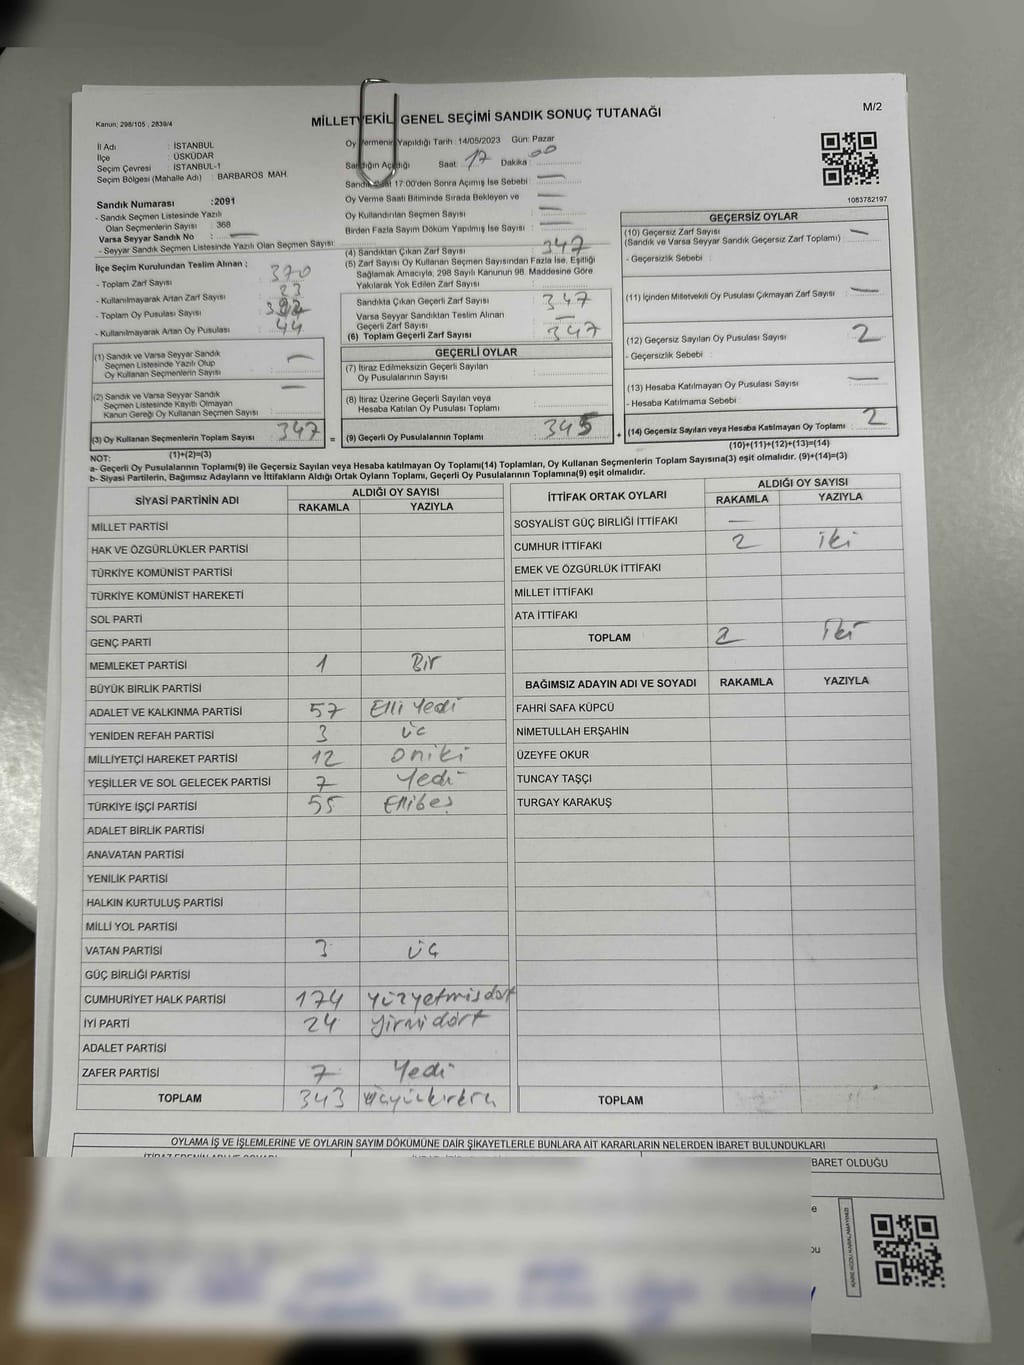 Kanun: 298/105 , 2839/4
MİLLETVEKİLİ GENEL SEÇİMİ SANDIK SONUÇ TUTANAĞI
M/2
İl Adı : İSTANBUL
İlçe : ÜSKÜDAR
Seçim Çevresi : İSTANBUL-1
Seçim Bölgesi (Mahalle Adı) : BARBAROS MAH.
Oy Vermenin Yapıldığı Tarih : 14/05/2023 Gün: Pazar
Sandığın Açıldığı Saat: 17 Dakika : 00
Sandık Saat 17:00'den Sonra Açılmış İse Sebebi :
Oy Verme Saati Bitiminde Sırada Bekleyen ve
Oy Kullandırılan Seçmen Sayısı :
Birden Fazla Sayım Döküm Yapılmış İse Sayısı :
1083782197
Sandık Numarası :2091
- Sandık Seçmen Listesinde Yazılı
Olan Seçmenlerin Sayısı : 368
Varsa Seyyar Sandık No :
- Seyyar Sandık Seçmen Listesinde Yazılı Olan Seçmen Sayısı:
İlçe Seçim Kurulundan Teslim Alınan ;
- Toplam Zarf Sayısı : 370
- Kullanılmayarak Artan Zarf Sayısı : 23
- Toplam Oy Pusulası Sayısı :
- Kullanılmayarak Artan Oy Pusulası : 44
(1) Sandık ve Varsa Seyyar Sandık
Seçmen Listesinde Yazılı Olup
Oy Kullanan Seçmenlerin Sayısı :
(2) Sandık ve Varsa Seyyar Sandık
Seçmen Listesinde Kayıtlı Olmayan
Kanun Gereği Oy Kullanan Seçmen Sayısı :
(3) Oy Kullanan Seçmenlerin Toplam Sayısı : 347
(1)+(2)=(3)
(4) Sandıktan Çıkan Zarf Sayısı : 347
(5) Zarf Sayısı Oy Kullanan Seçmen Sayısından Fazla İse, Eşitliği
Sağlamak Amacıyla, 298 Sayılı Kanunun 98. Maddesine Göre
Yakılarak Yok Edilen Zarf Sayısı :
Sandıkta Çıkan Geçerli Zarf Sayısı : 347
Varsa Seyyar Sandıktan Teslim Alınan
Geçerli Zarf Sayısı :
(6) Toplam Geçerli Zarf Sayısı : 347
GEÇERLİ OYLAR
(7) İtiraz Edilmeksizin Geçerli Sayılan
Oy Pusulalarının Sayısı :
(8) İtiraz Üzerine Geçerli Sayılan veya
Hesaba Katılan Oy Pusulası Toplamı :
= (9) Geçerli Oy Pusulalarının Toplamı : 345
GEÇERSİZ OYLAR
(10) Geçersiz Zarf Sayısı :
(Sandık ve Varsa Seyyar Sandık Geçersiz Zarf Toplamı)
- Geçersizlik Sebebi :
(11) İçinden Milletvekili Oy Pusulası Çıkmayan Zarf Sayısı :
(12) Geçersiz Sayılan Oy Pusulası Sayısı : 2
- Geçersizlik Sebebi :
(13) Hesaba Katılmayan Oy Pusulası Sayısı :
- Hesaba Katılmama Sebebi :
+ (14) Geçersiz Sayılan veya Hesaba Katılmayan Oy Toplamı : 2
(10)+(11)+(12)+(13)=(14)
NOT:
a- Geçerli Oy Pusulalarının Toplamı(9) ile Geçersiz Sayılan veya Hesaba katılmayan Oy Toplamı(14) Toplamları, Oy Kullanan Seçmenlerin Toplam Sayısına(3) eşit olmalıdır. (9)+(14)=(3)
b- Siyasi Partilerin, Bağımsız Adayların ve İttifakların Aldığı Ortak Oyların Toplamı, Geçerli Oy Pusulalarının Toplamına(9) eşit olmalıdır.
SİYASİ PARTİNİN ADI ALDIĞI OY SAYISI
RAKAMLA YAZIYLA
MİLLET PARTİSİ
HAK VE ÖZGÜRLÜKLER PARTİSİ
TÜRKİYE KOMÜNİST PARTİSİ
TÜRKİYE KOMÜNİST HAREKETİ
SOL PARTİ
GENÇ PARTİ
MEMLEKET PARTİSİ 1 Bir
BÜYÜK BİRLİK PARTİSİ
ADALET VE KALKINMA PARTİSİ 57 Elli Yedi
YENİDEN REFAH PARTİSİ 3 üc
MİLLİYETÇİ HAREKET PARTİSİ 12 oniki
YEŞİLLER VE SOL GELECEK PARTİSİ 7 Yedi
TÜRKİYE İŞÇİ PARTİSİ 55 Ellibeş
ADALET BİRLİK PARTİSİ
ANAVATAN PARTİSİ
YENİLİK PARTİSİ
HALKIN KURTULUŞ PARTİSİ
MİLLİ YOL PARTİSİ
VATAN PARTİSİ 3 üç
GÜÇ BİRLİĞİ PARTİSİ
CUMHURİYET HALK PARTİSİ 174 yüzyetmisdört
İYİ PARTİ 24 yirmidört
ADALET PARTİSİ
ZAFER PARTİSİ 7 Yedi
TOPLAM 343
İTTİFAK ORTAK OYLARI ALDIĞI OY SAYISI
RAKAMLA YAZIYLA
SOSYALİST GÜÇ BİRLİĞİ İTTİFAKI
CUMHUR İTTİFAKI 2 iki
EMEK VE ÖZGÜRLÜK İTTİFAKI
MİLLET İTTİFAKI
ATA İTTİFAKI
TOPLAM 2 iki
BAĞIMSIZ ADAYIN ADI VE SOYADI RAKAMLA YAZIYLA
FAHRİ SAFA KÜPCÜ
NİMETULLAH ERŞAHİN
ÜZEYFE OKUR
TUNCAY TAŞÇI
TURGAY KARAKUŞ
TOPLAM
OYLAMA İŞ VE İŞLEMLERİNE VE OYLARIN SAYIM DÖKÜMÜNE DAİR ŞİKAYETLERLE BUNLARA AİT KARARLARIN NELERDEN İBARET BULUNDUKLARI
BARET OLDUĞU